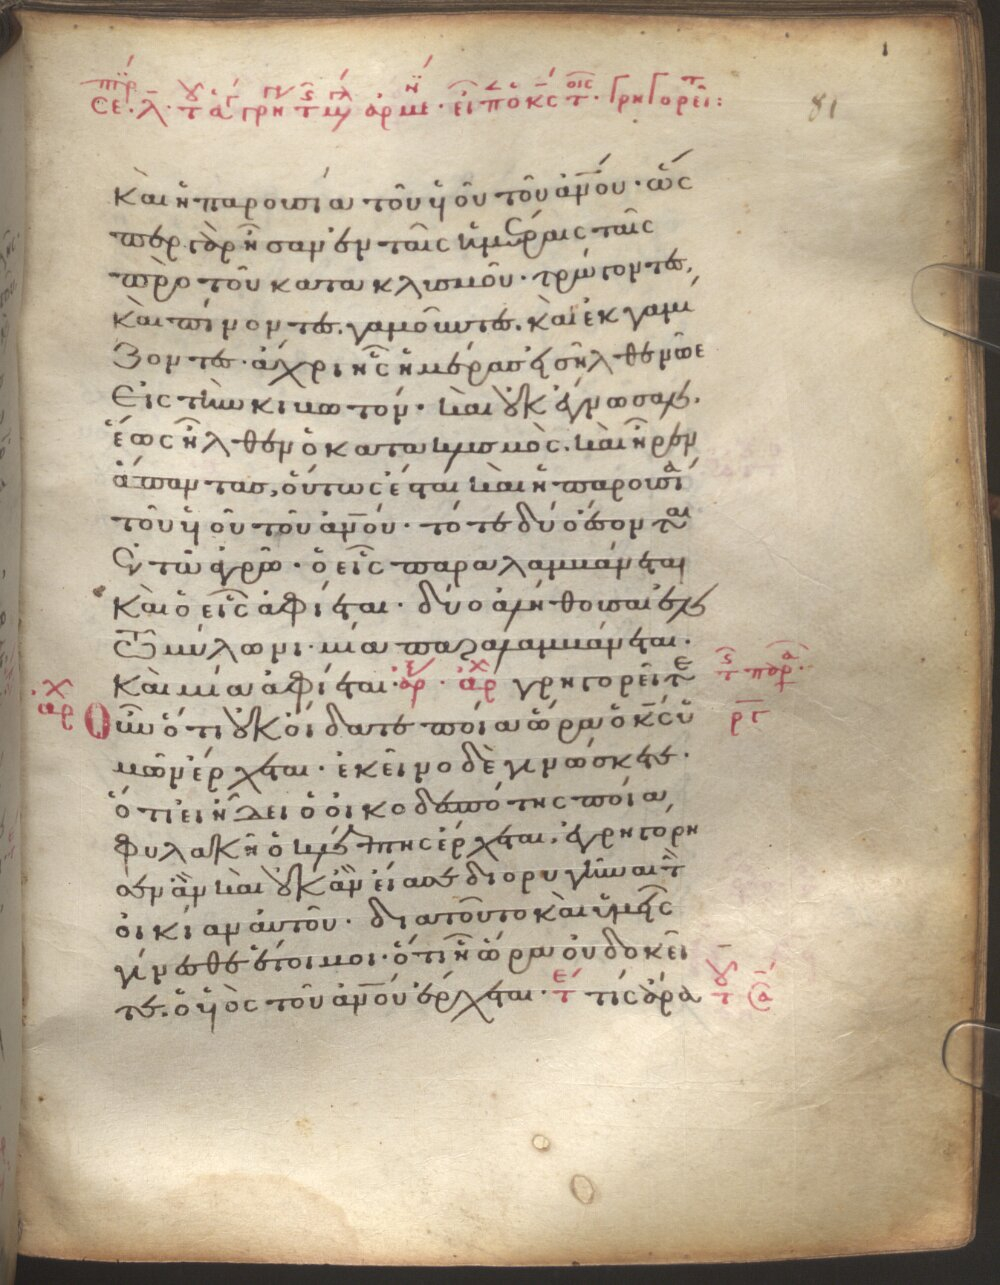 81
και ἡ παρουσία τοῦ υἱοῦ του ἀνου· ὡς
περ γὰρ ἦσαν ἐν ταῖς ἡμέραις ταῖς
πρὸ τοῦ κατακλισμοῦ· τρώγοντες,
και πίνοντες. γαμοῦντες. και ἐκγαμι
ζοντες· ἀχρι ἧς ἡμέρας εἰσῆλθε νῶε
εἰς την κιβωτόν· και οὐκ ἔγνωσαν.
ἕως ἦλθεν ὁ κατακλισμὸς. και ἦρεν
ἅπαντας, οὕτως ἔσται και ἡ παρουσία
τοῦ υἱοῦ τοῦ ἀνου· τότε δύο ἔσονται
ἐν τῶ ἀγρῶ· ὁ εἷς παραλαμβάνεται
και ὁ εἷς ἀφίεται· δύο ἀλήθουσαι ἐν
τῶ μύλωνι· μία παραλαμβάνεται·
και μία ἀφίεται· γρηγορεῖτε
οὖν ὅτι οὐκ οἴδατε ποία ὥρα ὁ κς ὑ
μῶν ἔρχεται· ἐκεῖνο δὲ γινώσκετε·
ὅτι εἰ ἤδει ὁ οἰκοδεσπότης ποία,
φυλακῆ ὁ κλέπτης ἔρχεται, ἐγρηγόρη
σεν ἂν και οὐκ ἂν εἴασε διορυγῆναι τὴν
οἰκίαν αὐτοῦ· διατοῦτο και ὑμεῖς
γίνεσθε ἕτοιμοι· ὅτι ἧ ὥρα οὐ δοκεῖ
τε. ὁ υἱὸς τοῦ ἀνου ἔρχεται· τίς ἄρα